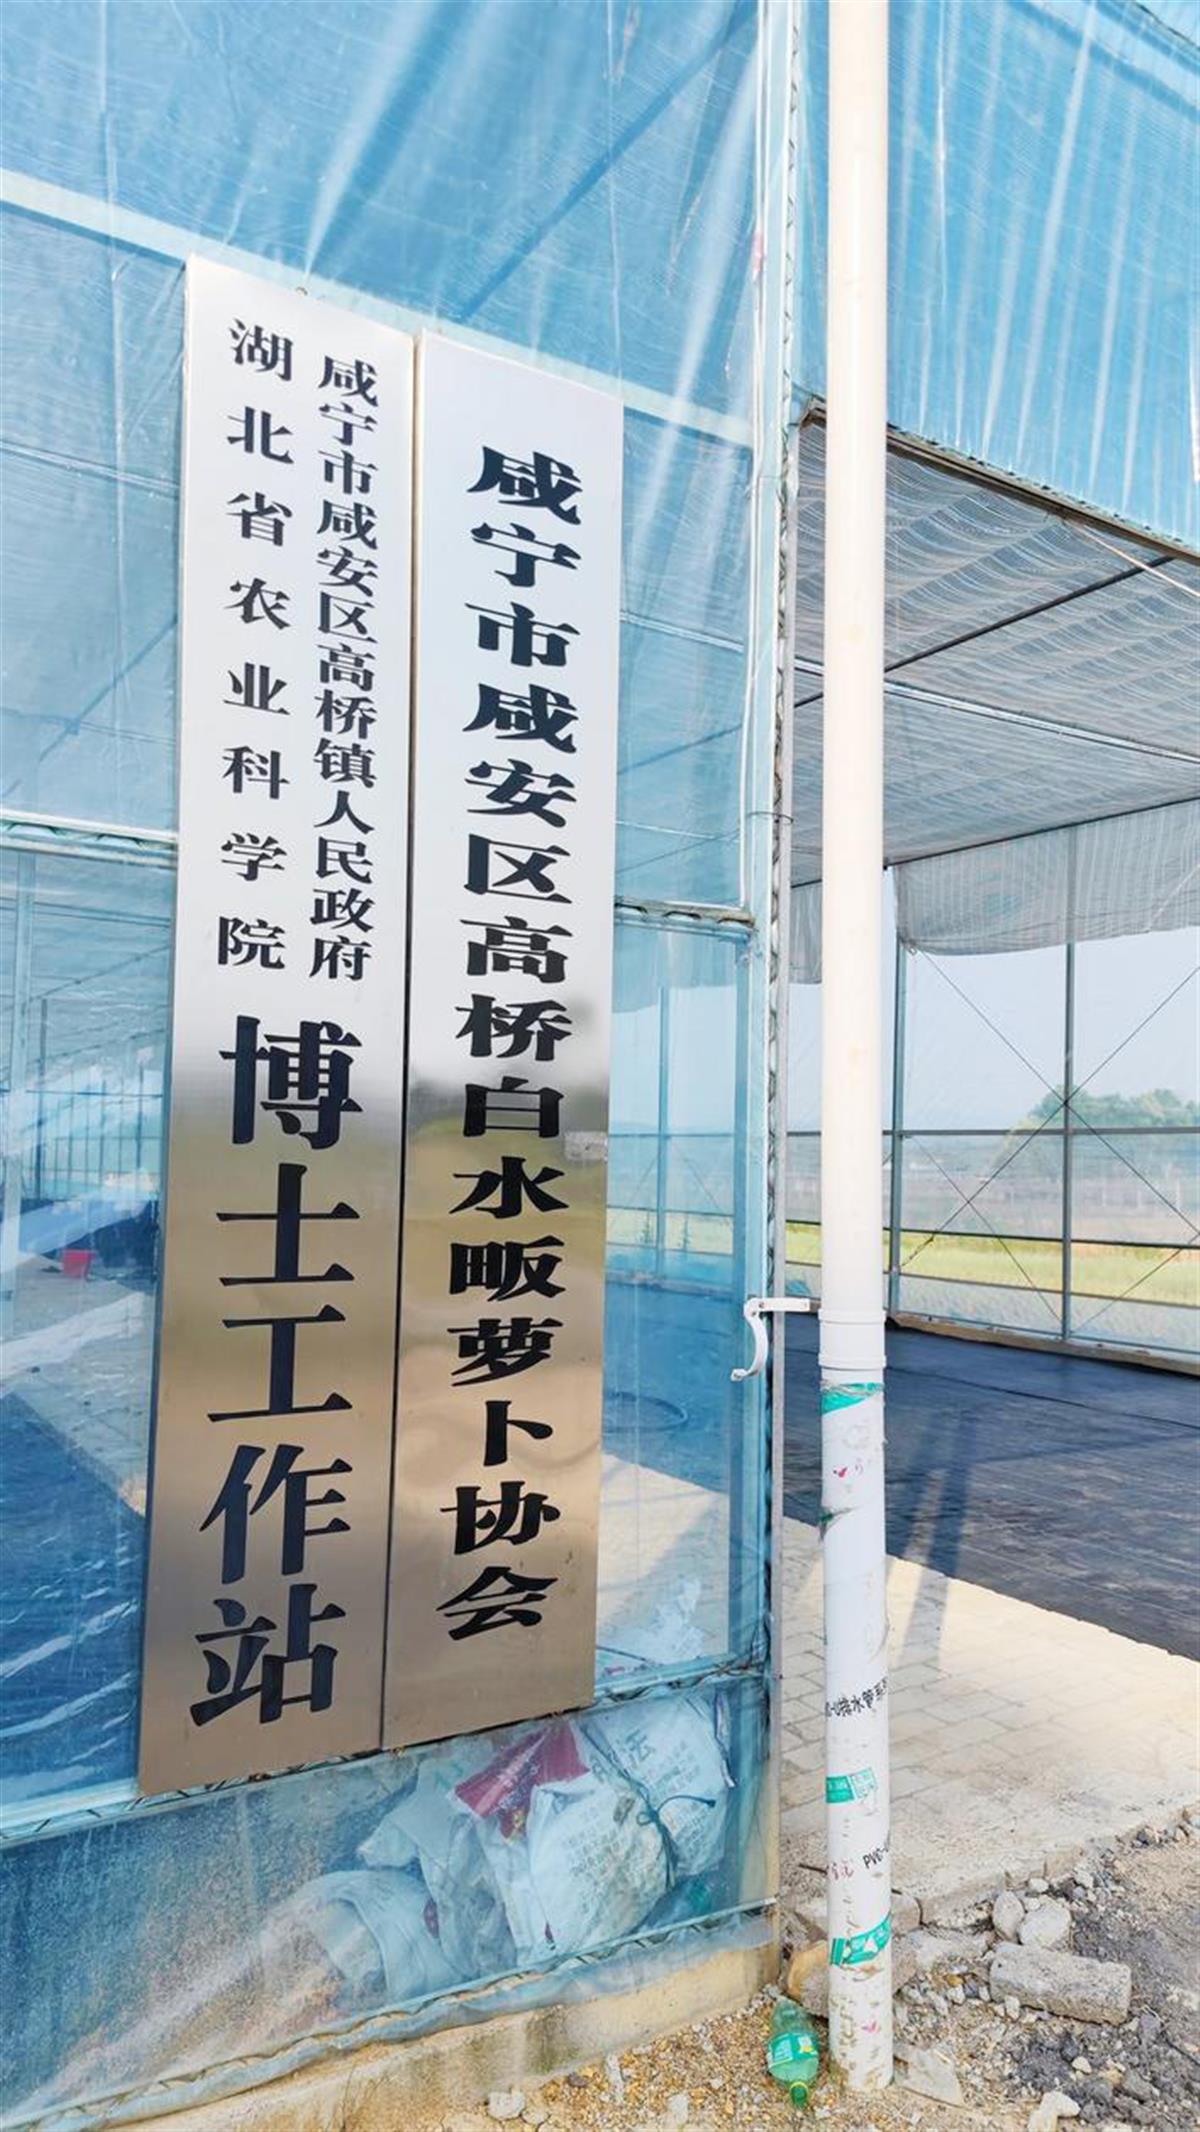 咸宁市咸安区高桥镇人民政府
湖北省农业科学院
博士工作站
咸宁市咸安区高桥白水畈萝卜协会
排水管系
PVC-U